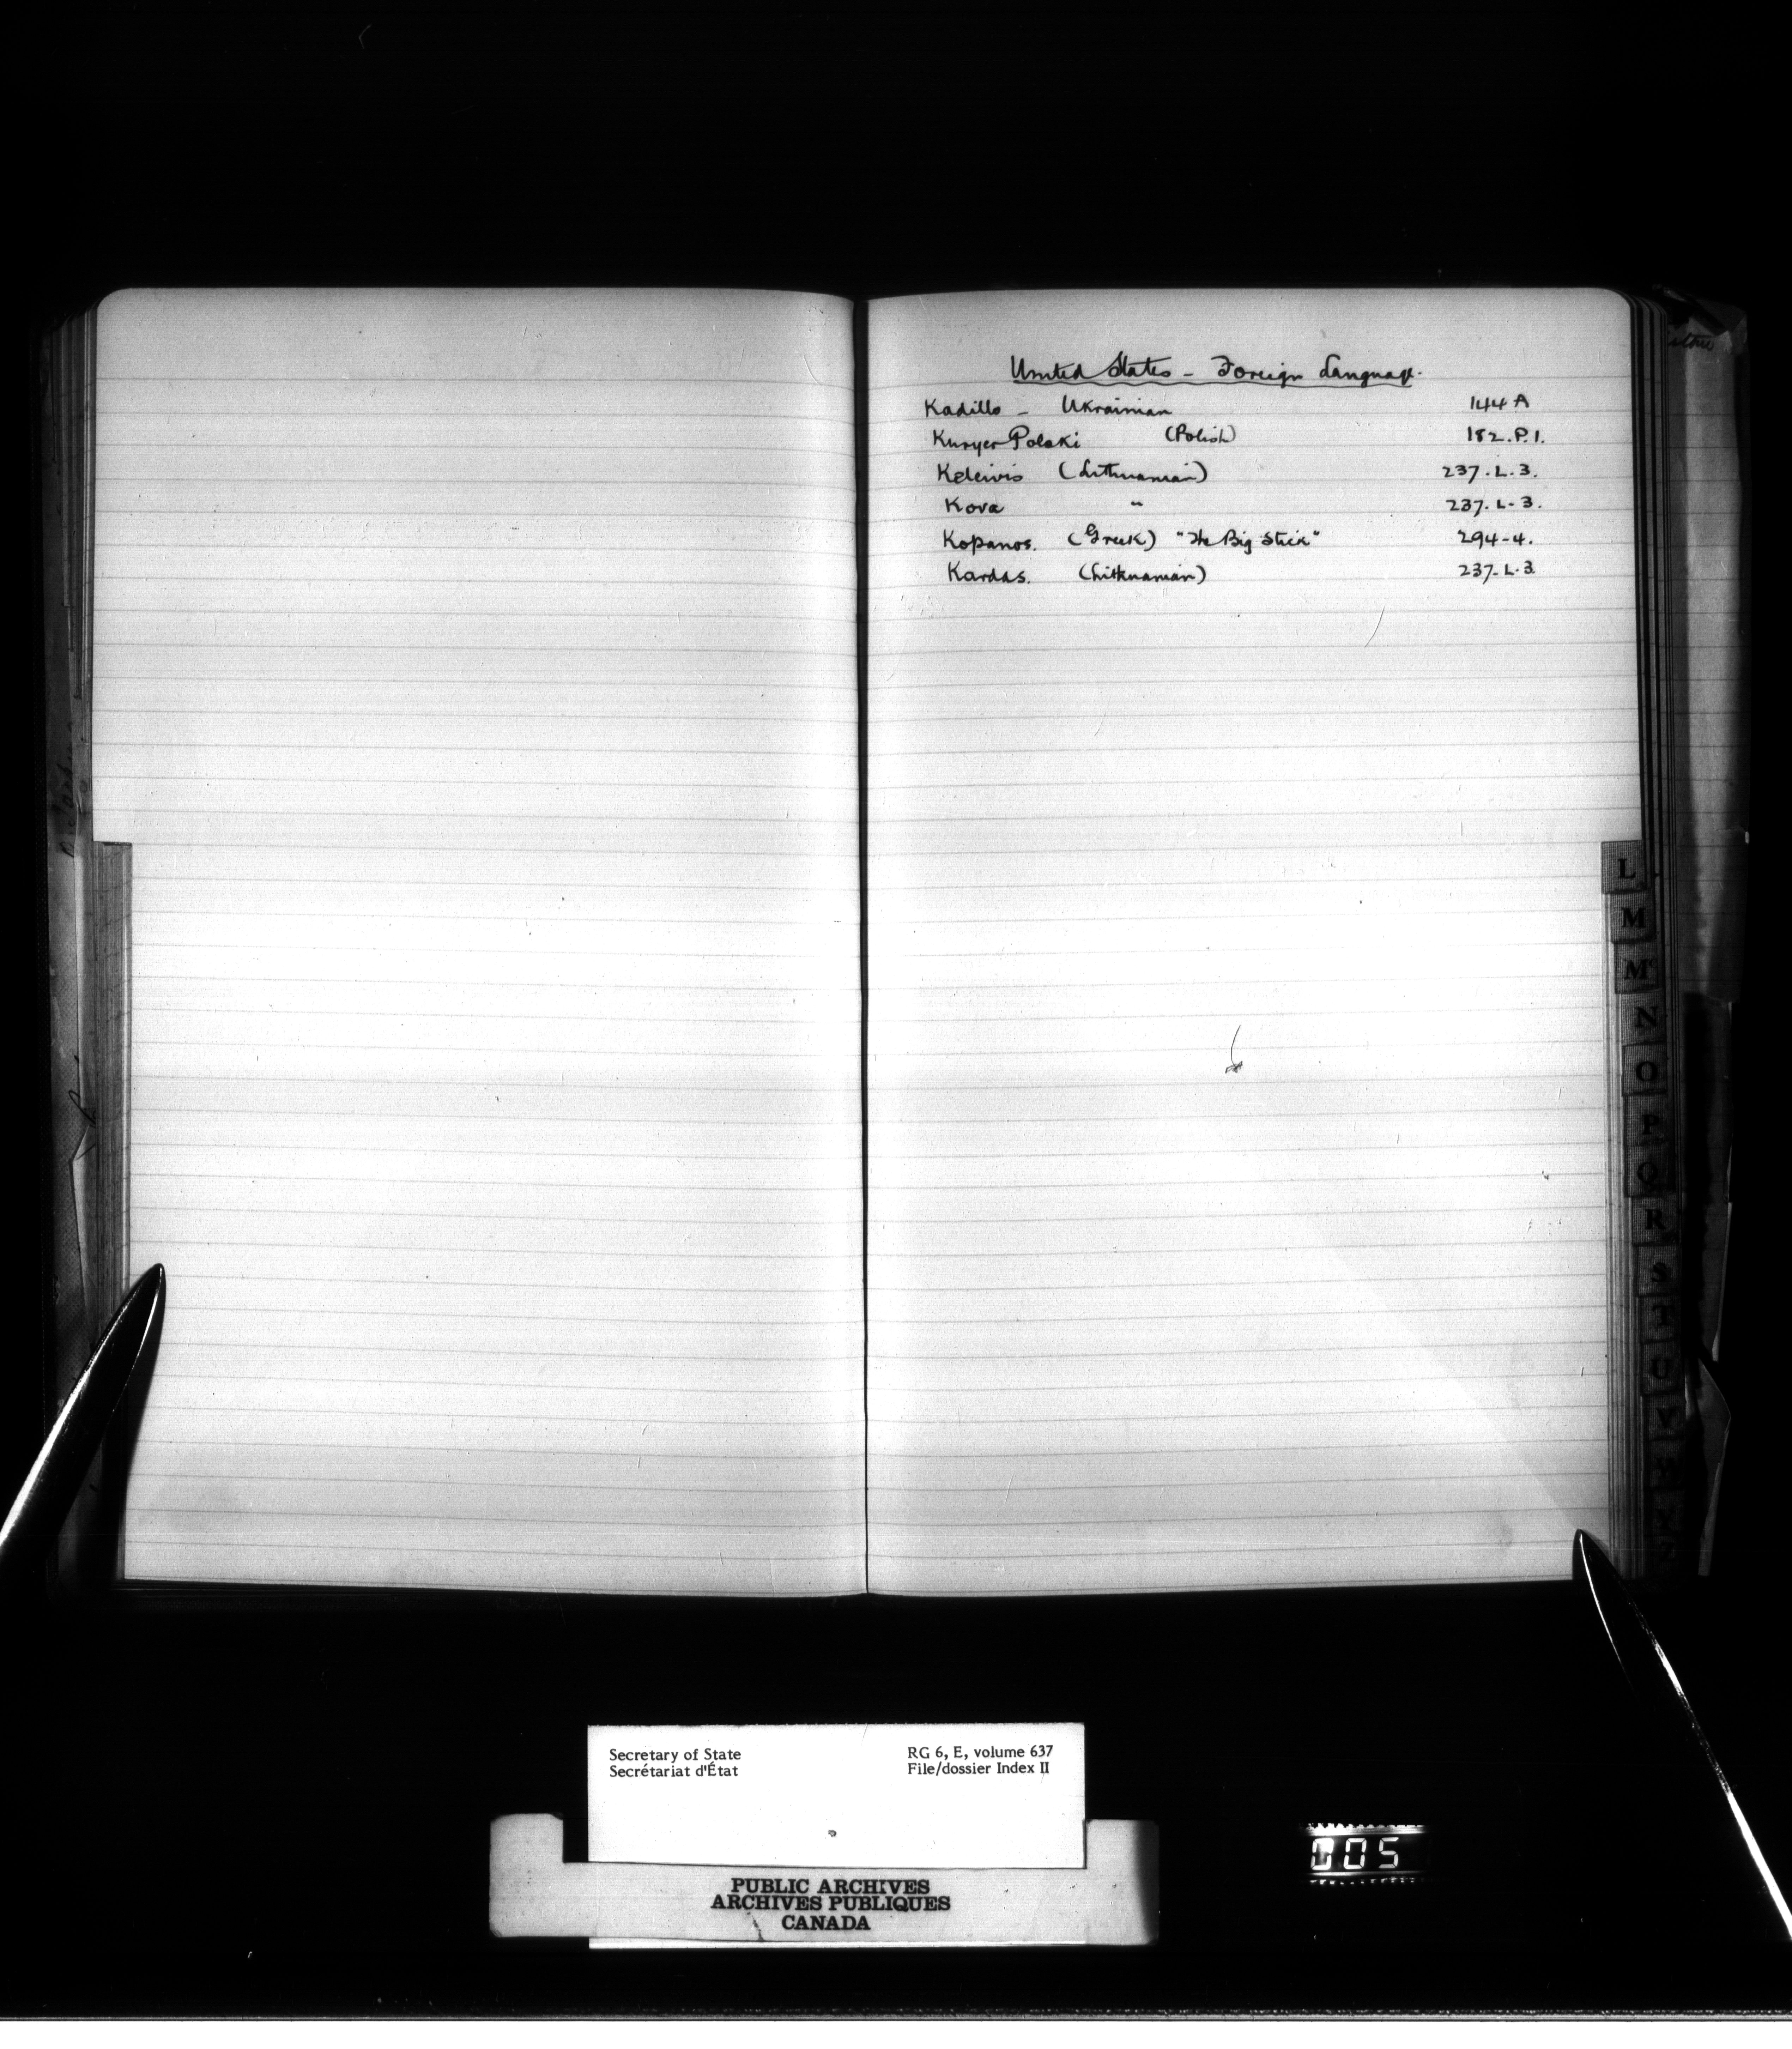 United States - Foreign Language.
Kadillo - Ukrainian 144 A
Kuryer Polski (Polish) 182.P.1.
Keleivis (Lithuanian) 237.L.3.
Kova " 237.L-3.
Kopanos. (Greek) "The Big Stick" 294-4.
Kardas. (Lithuanian) 237-L.3.
L
M
Mc
N
O
P
Q
R
S
T
U
V
W
X
Secretary of State RG 6, E, volume 637
Secrétariat d'État File/dossier Index II
PUBLIC ARCHIVES
ARCHIVES PUBLIQUES
CANADA
005